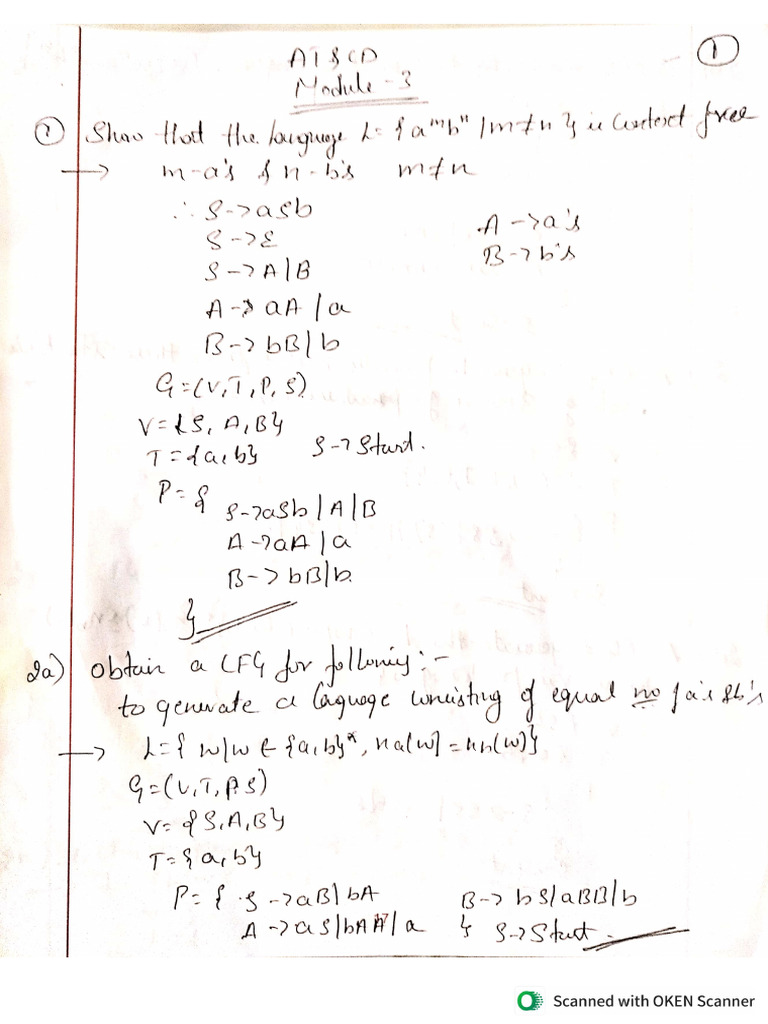 ①
AT&CD
Module-3
① Show that the language L={a^m b^n | m≠n} is context free
→ m-a's & n-b's m≠n
∴ S->aSb
S->ε
A->a's
S->A|B
B->b's
A->aA|a
B->bB|b
G=(V,T,P,S)
V={S,A,B}
T={a,b} S->Start.
P={
S->aSb|A|B
A->aA|a
B->bB|b
}
2a) Obtain a CFG for following:-
to generate a laguage consisting of equal no of a's & b's
→ L={w|w ∈ {a,b}*, na(w)=nb(w)}
G=(V,T,P,S)
V={S,A,B}
T={a,b}
P={ S->aB|bA B-> bS|aBB|b
A->aS|bAA|a } S->Start.
Scanned with OKEN Scanner